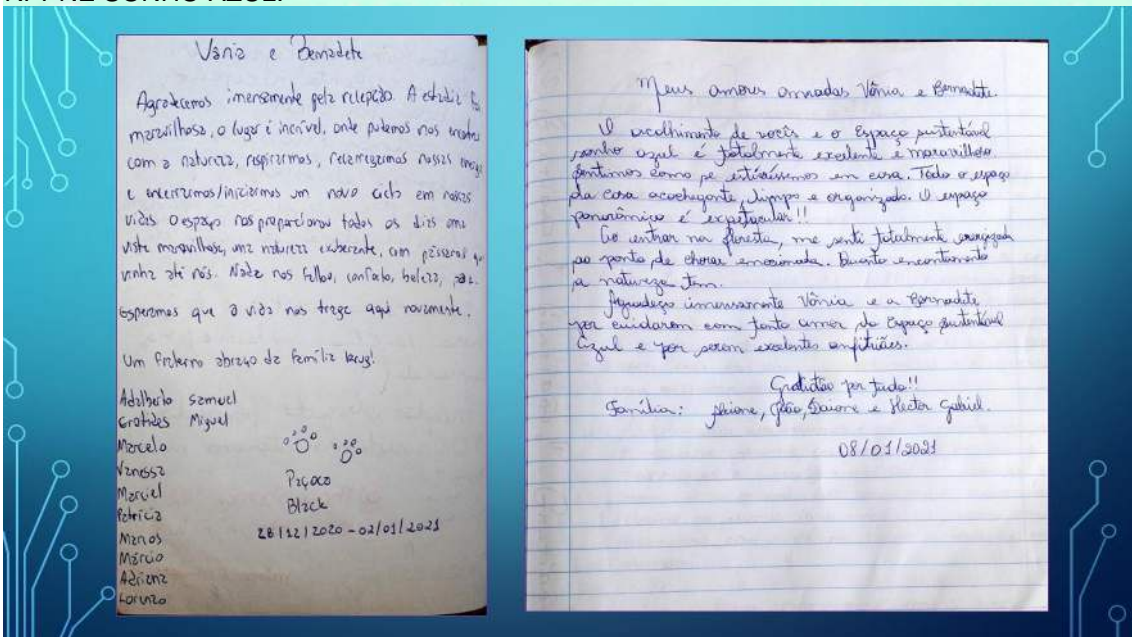 Vânia e Bernadete
Agradecemos imensamente pela recepção. A estadia foi
maravilhosa, o lugar é incrível, onde pudemos nos
com a natureza, respirarmos, recarregarmos nossas
e encerrarmos/iniciarmos um novo ciclo em nossas
vidas. O espaço nos proporcionou todos os dias uma
vista maravilhosa, uma natureza exuberante, com pássaros
vinha até nós. Nada nos faltou, conforto, beleza, paz.
Esperamos que a vida nos traga aqui novamente.
Um fraterno abraço da família
Adalberto Samuel
Miguel
Marcelo
Vanessa
Marciel
Patricia
Marcio
Adriana
Lorenzo
Paçoca
Black
28/12/2020 - 02/01/2021
Meus amores amadas Vânia e Bernadete.
O acolhimento de vocês e o Espaço sustentável
sonho azul é totalmente excelente e maravilhoso
Sentimos como se estivéssemos em casa. Todo o espaço
da casa acochegante, limpo e organizado. O espaço
panorâmico é expetacular!!
Ao entrar na floresta, me senti totalmente energizada
ao ponto de chorar emocionada. Quanto encantamento
a natureza tem.
Agradeço imensamente Vânia e a Bernadete
por cuidarem com tanto amor do Espaço Sustentável
Azul e por serem excelentes anfitriães.
Gratidão por tudo!!
Família: João, Daiane e Hector Gabriel.
08/01/2021